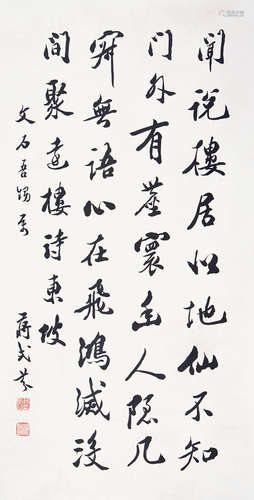 聞說樓居似地仙不知
門外有塵寰幽人隱几
寂無語心在飛鴻滅沒
間聚遠樓詩東坡
文石吾兄屬
蔣式芬